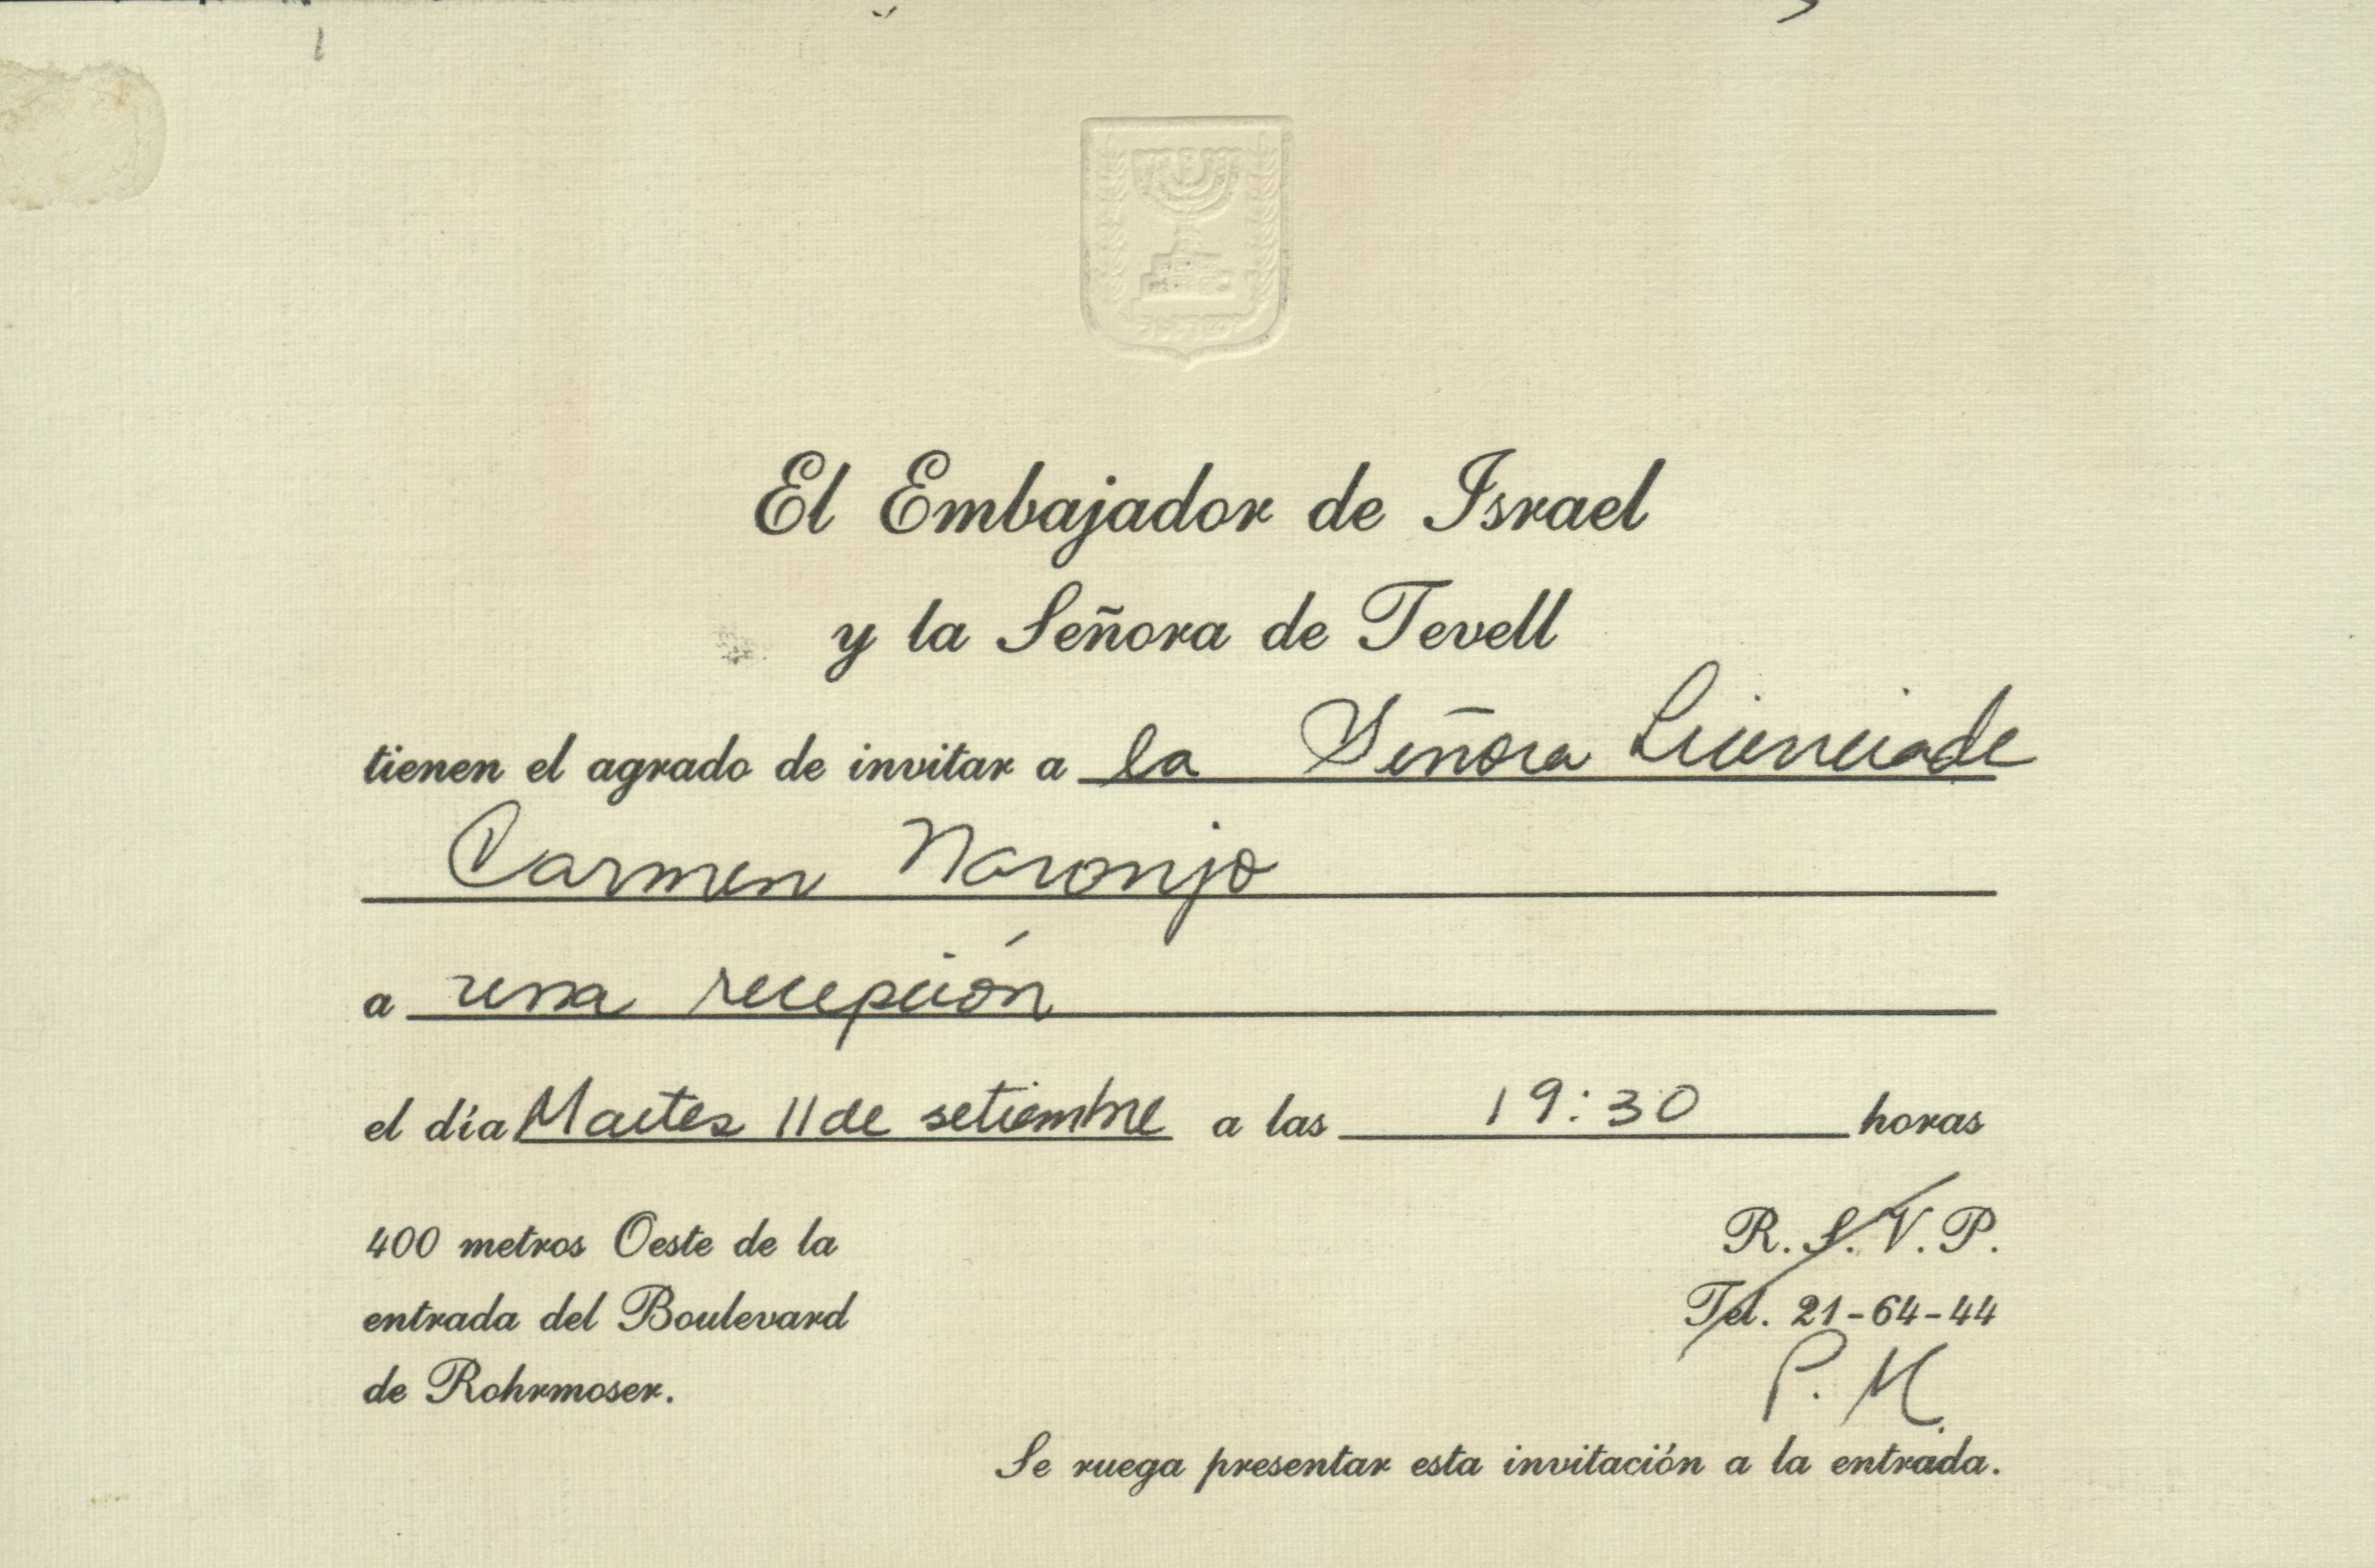 El Embajador de Israel
y la Señora de Tevell
tienen el agrado de invitar a la Señora Licenciada
Carmen Naranjo
a una recepción
el día Martes 11 de setiembre a las 19:30 horas
400 metros Oeste de la
entrada del Boulevard
de Rohrmoser.
R. S. V. P.
Tel. 21-64-44
P. M.
Se ruega presentar esta invitación a la entrada.